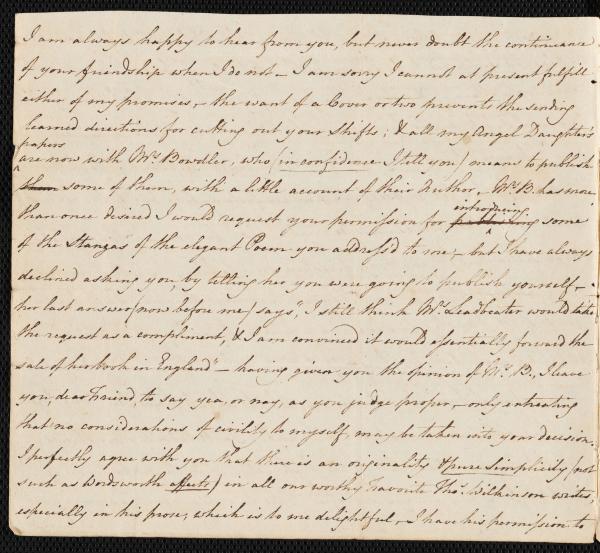 I am always happy to hear from you, but never doubt the continuance
of your friendship when I do not – I am sorry I cannot at present fulfill
either of my promises, – the want of a Cover or two prevents the sending
learned directions for cutting out your Shifts; & all my Angel Daughter's
papers
are now with Mrs. Bowdler, who (in confidence I tell you) means to publish
them some of them, with a little account of their Author, – Mrs. B. has more
introducing
than once desired I would request your permission for publishing some
of the Stanzas of the elegant Poem you address'd to me; – but I have always
declined asking you, by telling her you were going to publish yourself, –
her last answer (now before me) says, "I still think Mrs. Leadbeater would take
the request as a compliment, & I am convinced it would essentially forward the
sale of her book in England" – having given you the opinion of Mrs. B., I leave
you, dear Friend, to say yea, or nay, as you judge proper, – only entreating
that no considerations of civility to myself, may be taken into your decision.
I perfectly agree with you that there is an originality & pure simplicity (not
such as Wordsworth affects) in all our worthy Favorite Thos. Wilkinson writes,
especially in his prose, which is to me delightful, – I have his permission to